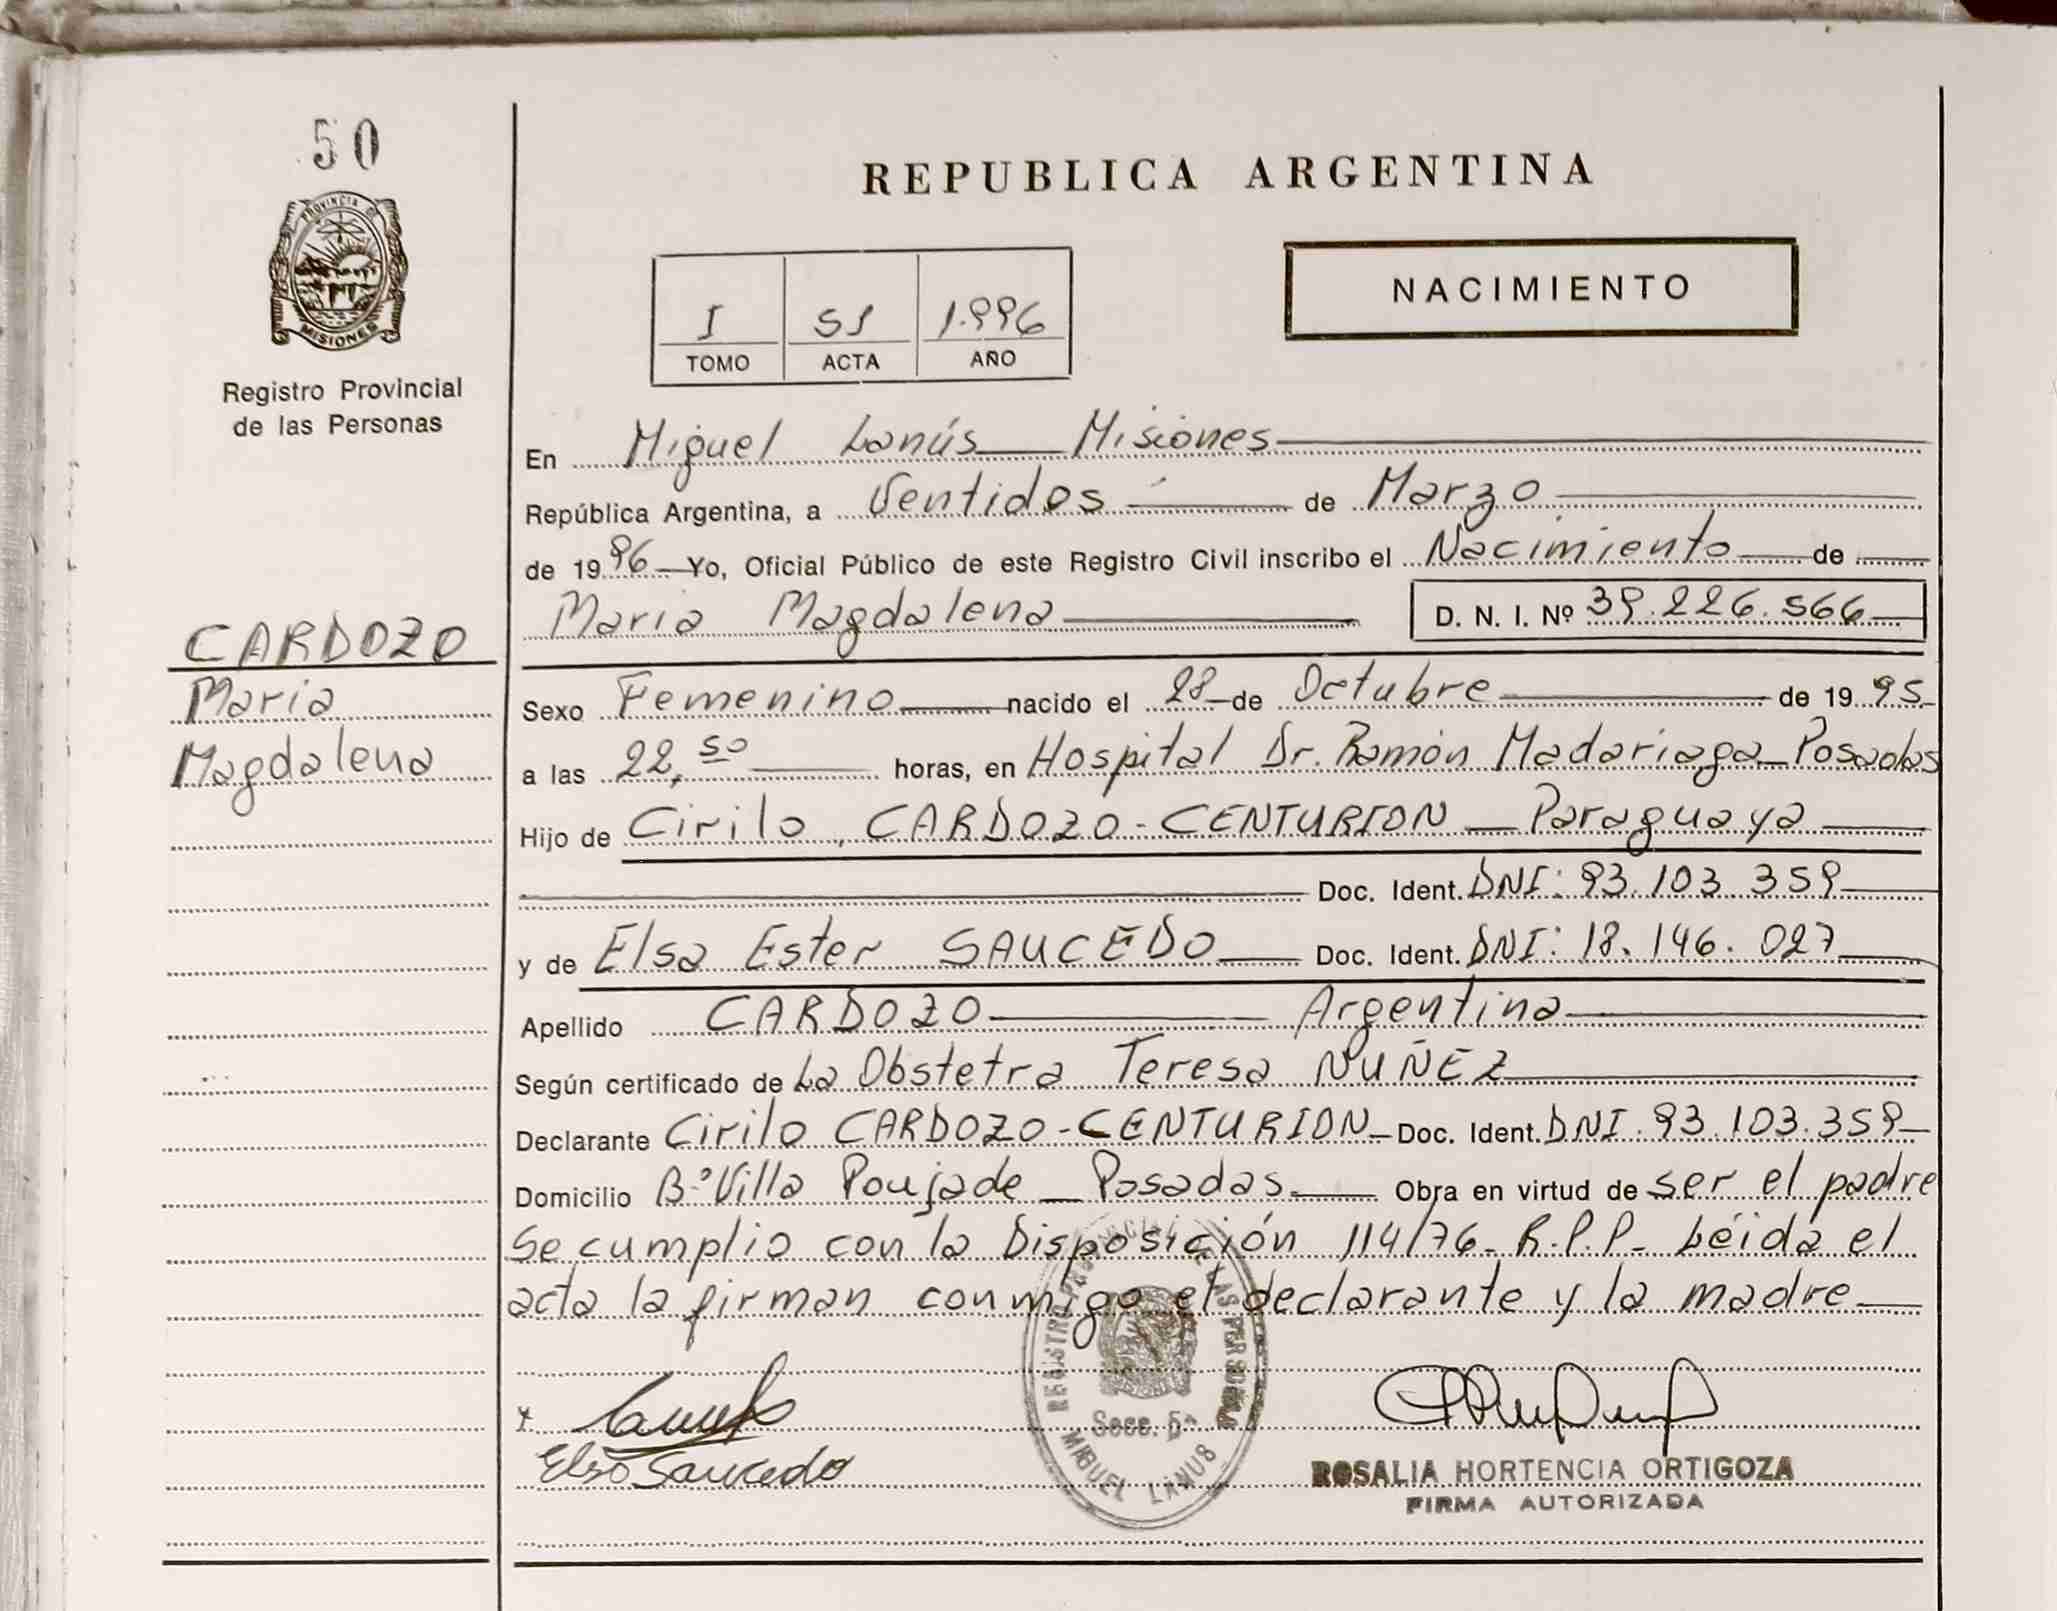 50
PROVINCIA DE
MISIONES
Registro Provincial
de las Personas
REPUBLICA ARGENTINA
I 51 1.996
TOMO ACTA AÑO
NACIMIENTO
En Miguel Lanús Misiones
República Argentina, a Ventidos de Marzo
de 1996 Yo, Oficial Público de este Registro Civil inscribo el Nacimiento de
Maria Magdalena D. N. I. Nº 39.226.566
CARDOZO
Maria
Magdalena
Sexo Femenino nacido el 28 de Octubre de 1995
a las 22,50 horas, en Hospital Dr. Ramón Madariaga Posadas
Hijo de Cirilo, CARDOZO-CENTURION Paraguaya
Doc. Ident. DNI: 93.103 359
y de Elsa Ester SAUCEDO Doc. Ident. DNI: 18.146.027
Apellido CARDOZO Argentina
Según certificado de La Obstetra Teresa NUÑEZ
Declarante Cirilo CARDOZO-CENTURION Doc. Ident. DNI. 93.103.359
Domicilio B.º Villa Poujade Posadas Obra en virtud de ser el padre
Se cumplio con la Disposición 114/76 R.P.P. Léida el
acta la firman conmigo el declarante y la madre
REGISTRO PROVINCIAL DE LAS PERSONAS
Secc. 5ª
MIGUEL LANUS
Elsa Saucedo
ROSALIA HORTENCIA ORTIGOZA
FIRMA AUTORIZADA